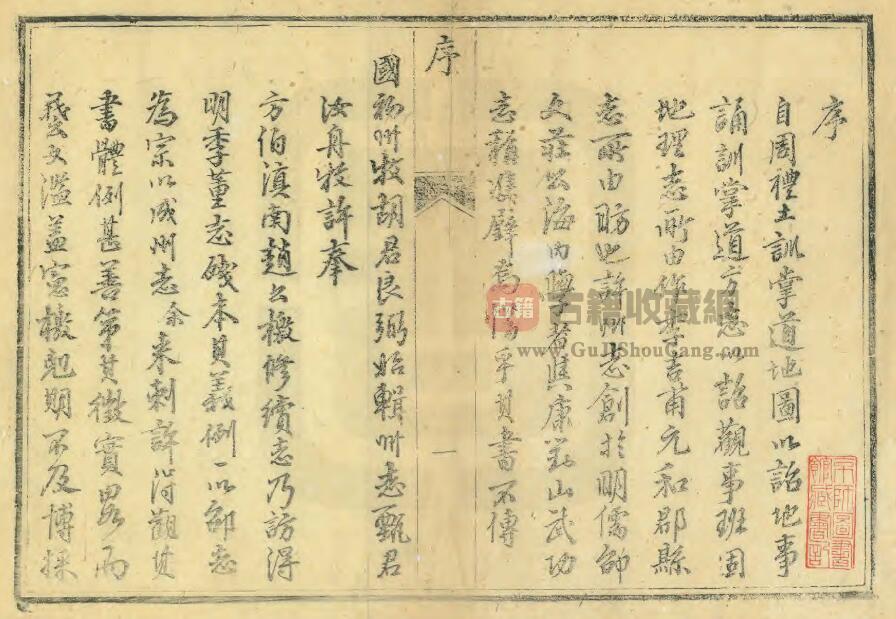 序
自周禮土訓掌道地圖以詔地事
誦訓掌道方志以詔觀事班固
地理志所由作李吉甫元和郡縣
志所由昉也許州志創於明儒邵
文莊公海內學者與康對山武功
志 璧 乎其書不傳
序
一
國初州牧胡君良弼始輯州志甄君
汝舟牧許奉
方伯滇南趙公檄修續志乃訪得
明季董志殘本其義例一以邵志
為宗以成州志余來刺許得觀其
書體例甚善第其徵實畧而
藝文濫蓋憲檄剋期不及博採
京師圖書
館藏書記
古籍
古籍收藏網
www.GuJiShouCang.com